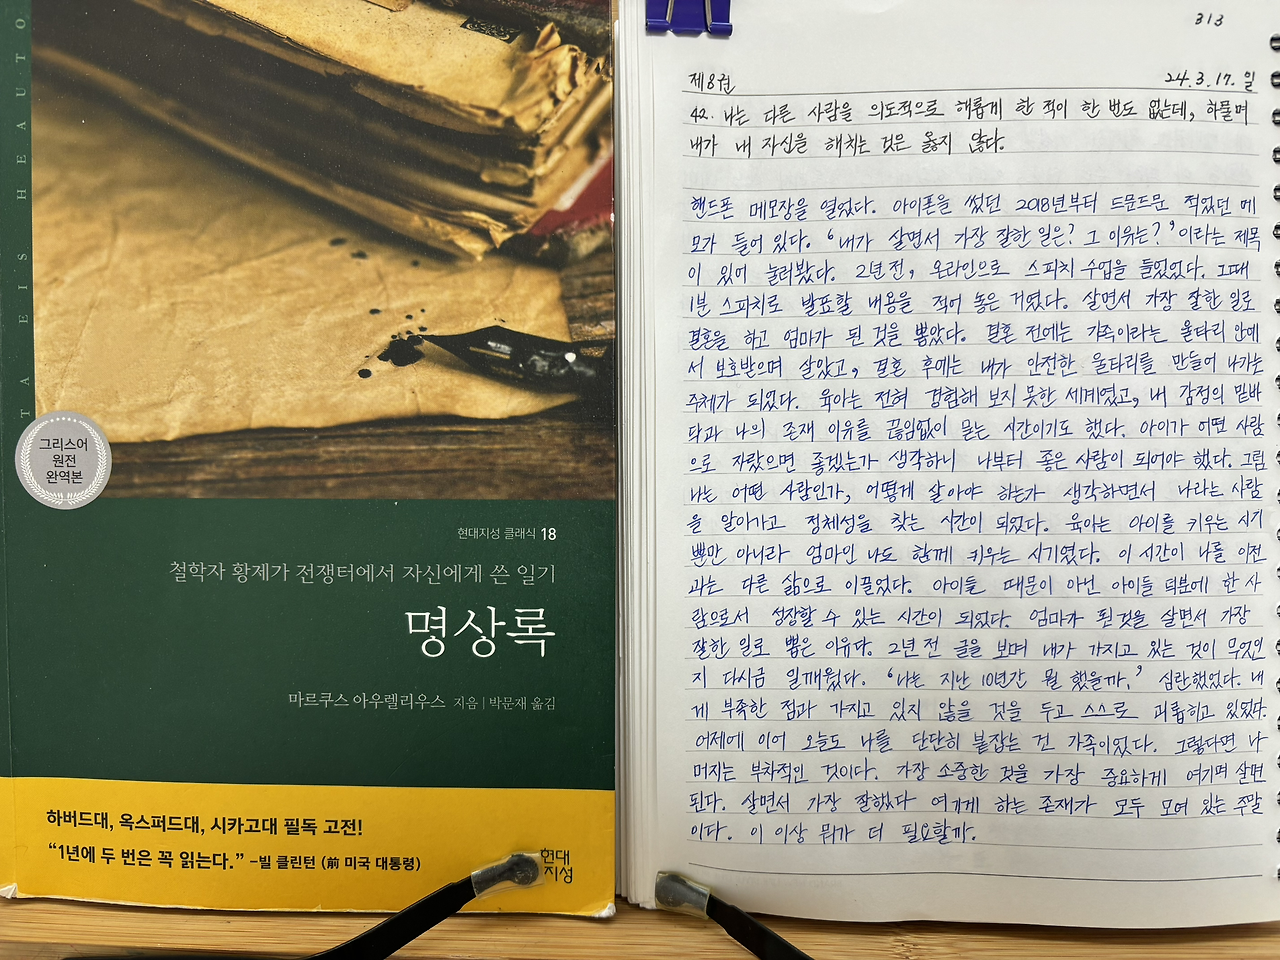 TA EI'S HEAUTO
그리스어
원전
완역본
현대지성 클래식 18
철학자 황제가 전쟁터에서 자신에게 쓴 일기
명상록
마르쿠스 아우렐리우스 지음 | 박문재 옮김
하버드대, 옥스퍼드대, 시카고대 필독 고전!
“1년에 두 번은 꼭 읽는다.” –빌 클린턴 (前 미국 대통령)
현대
지성
313
제8권 24.3.17. 일
42. 나는 다른 사람을 의도적으로 해롭게 한 적이 한 번도 없는데, 하물며
내가 내 자신을 해치는 것은 옳지 않다.
핸드폰 메모장을 열었다. 아이폰을 썼던 2018년부터 드문드문 적었던 메
모가 들어 있다. ‘내가 살면서 가장 잘한 일은? 그 이유는?’이라는 제목
이 있어 눌러봤다. 2년 전, 온라인으로 스피치 수업을 들었었다. 그때
1분 스피치로 발표할 내용을 적어 놓은 거였다. 살면서 가장 잘한 일로
결혼을 하고 엄마가 된 것을 뽑았다. 결혼 전에는 가족이라는 울타리 안에
서 보호받으며 살았고, 결혼 후에는 내가 안전한 울타리를 만들어 나가는
주체가 되었다. 육아는 전혀 경험해 보지 못한 세계였고, 내 감정의 밑바
닥과 나의 존재 이유를 끊임없이 묻는 시간이기도 했다. 아이가 어떤 사람
으로 자랐으면 좋겠는가 생각하니 나부터 좋은 사람이 되어야 했다. 그럼
나는 어떤 사람인가, 어떻게 살아야 하는가 생각하면서 나라는 사람
을 알아가고 정체성을 찾는 시간이 되었다. 육아는 아이를 키우는 시기
뿐만 아니라 엄마인 나도 함께 키우는 시기였다. 이 시간이 나를 이전
과는 다른 삶으로 이끌었다. 아이들 때문이 아닌 아이들 덕분에 한 사
람으로서 성장할 수 있는 시간이 되었다. 엄마가 된 것을 살면서 가장
잘한 일로 뽑은 이유다. 2년 전 글을 보며 내가 가지고 있는 것이 무엇인
지 다시금 일깨웠다. ‘나는 지난 10년간 뭘 했을까.’ 심란했었다. 내
게 부족한 점과 가지고 있지 않을 것을 두고 스스로 괴롭히고 있었다.
어제에 이어 오늘도 나를 단단히 붙잡는 건 가족이었다. 그렇다면 나
머지는 부차적인 것이다. 가장 소중한 것을 가장 중요하게 여기며 살면
된다. 살면서 가장 잘했다 여기게 하는 존재가 모두 모여 있는 주말
이다. 이 이상 뭐가 더 필요할까.